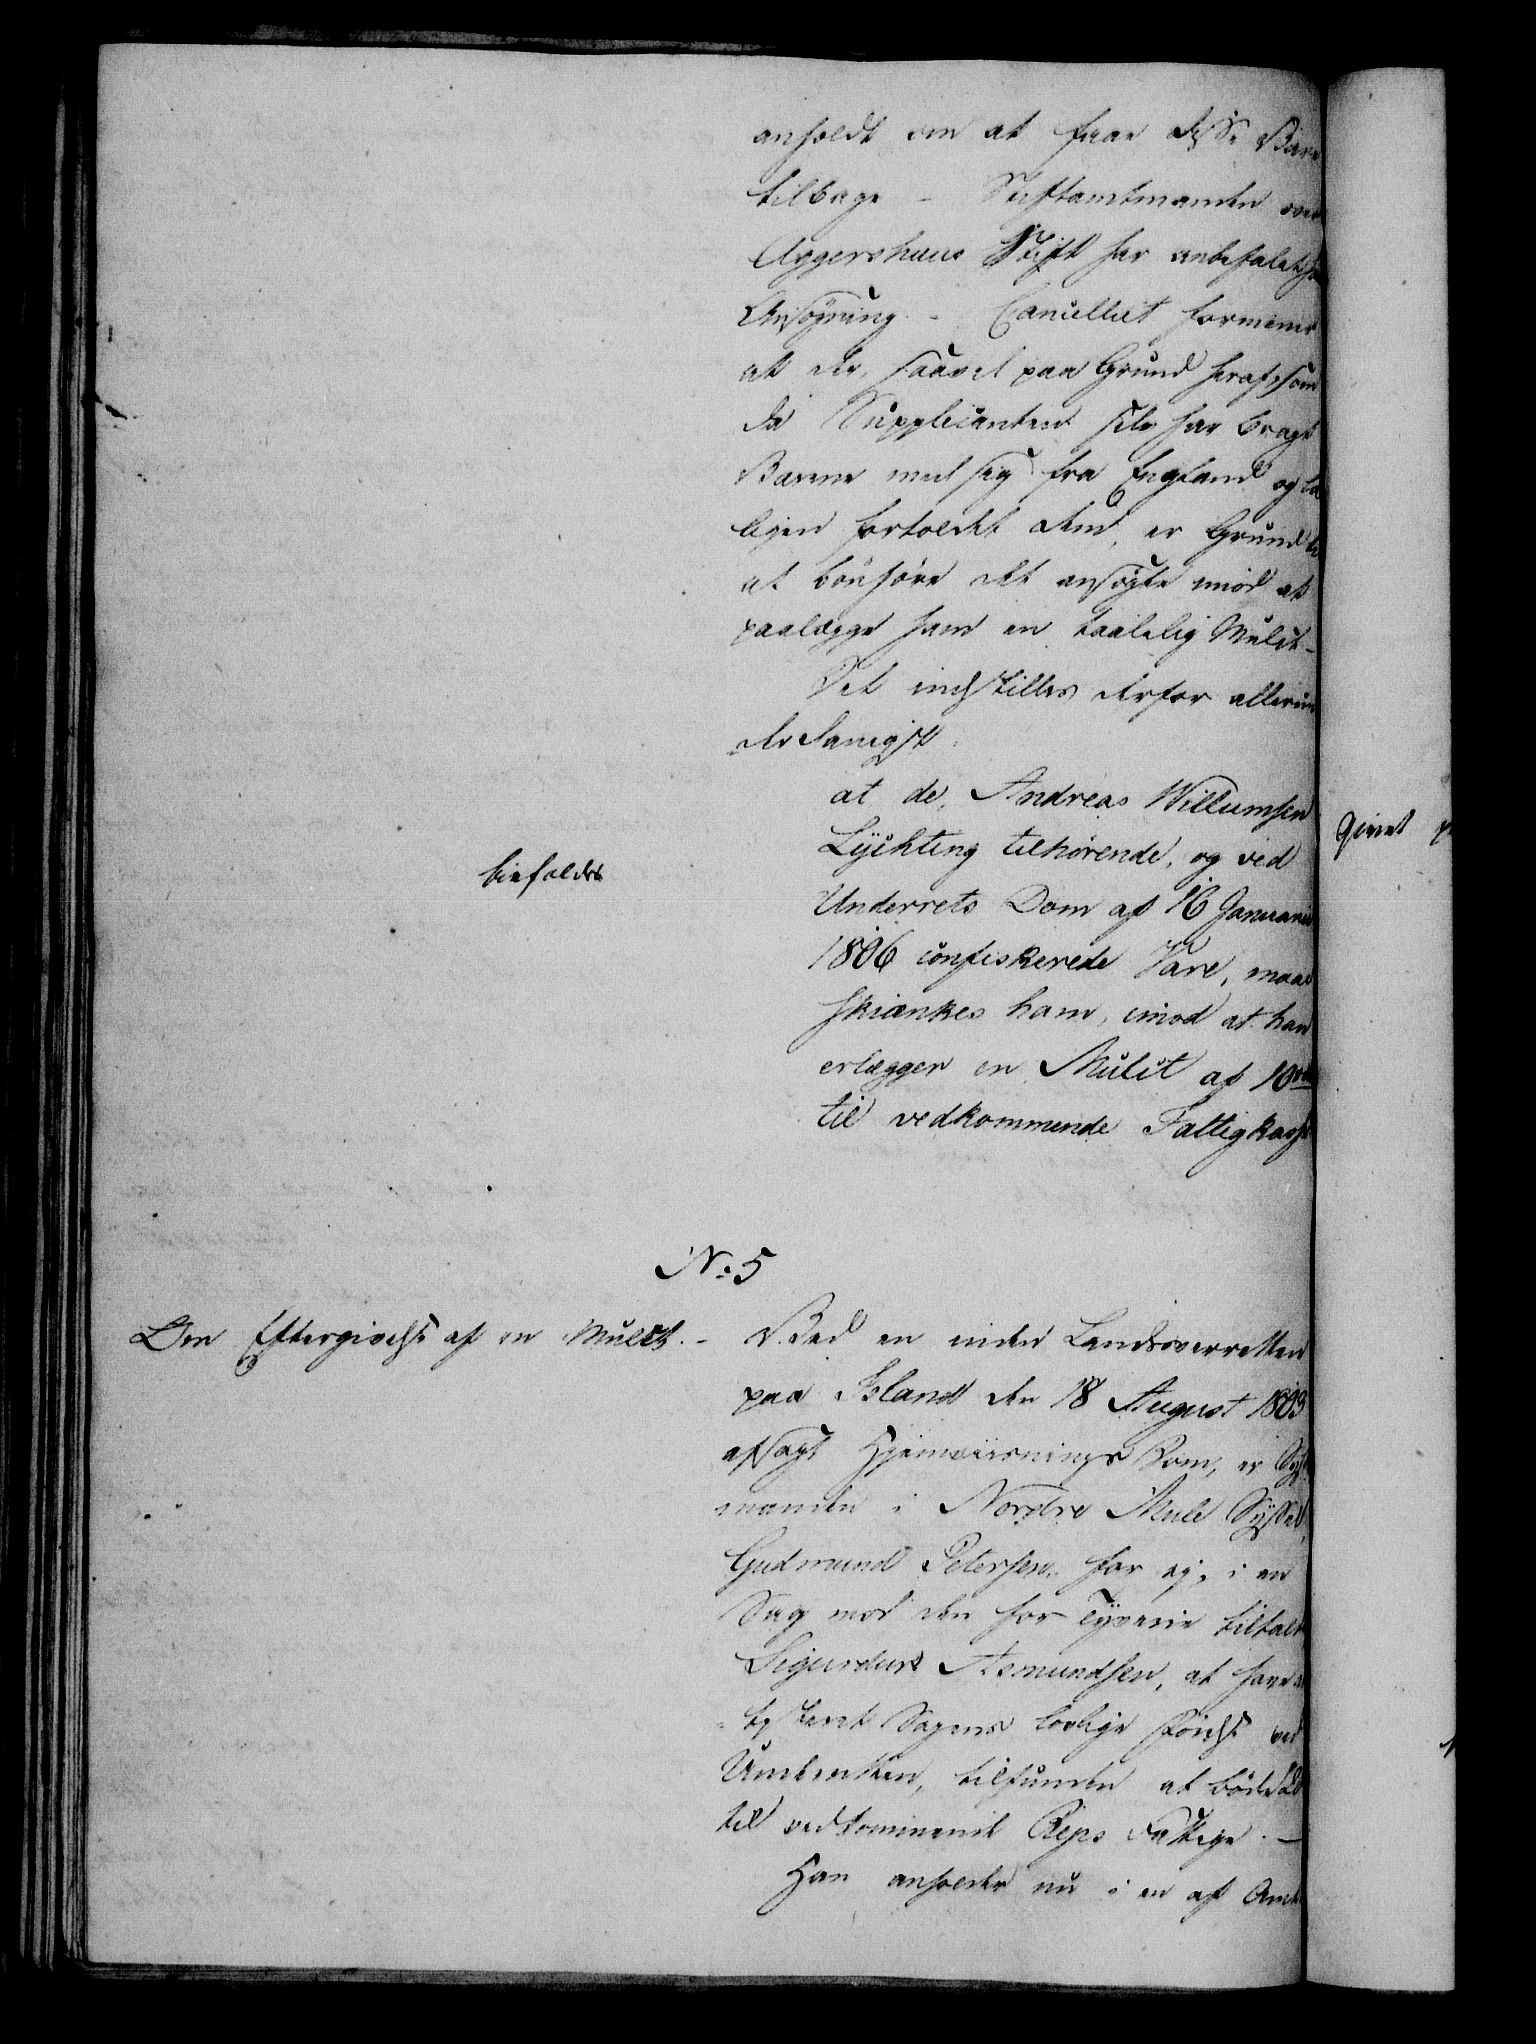 anholdt om at faae disse Vare
tilbage - Stiftamtmanden over
Aggershuus Stift har anbefalet
Ansøgning. - Cancelliet formener
at der, saavel paa Grund heraf, som
da Supplicanten selv har bragt
Varene med sig fra England og
ligen fortoldet dem, er Grund
at bønhøre det ansøgte imod at
paalægge ham en taalelig Mulct -
Det indstilles derfor allerun
derdanigst
at de, Andreas Willumsen
Lychting tilhørende, og ved
Underrets Dom af 16 Januarii
1806 confiskerede Vare, maae
skiænkes ham, imod at han
erlægger en Mulct af 10 rd
til vedkommende Fattigkasse
bifaldes
Givet
No: 5
Om Eftergivelse af en Mulct. -
Ved en inden Landsoverretten
paa Island den 18 August 1803
afsagt Hjemviisnings Dom, er Sys
manden i Nordre Mule Syssel,
Gudmund Petersen, for ej, i en
Sag mod den for Tyverie tiltalte
Sigurdur Asmundsen, at have
Sagens lovlige ved
Underretten, tilfunden at bøde
til vedkommende Reps Fattige. -
Han anholder nu i en af Amt